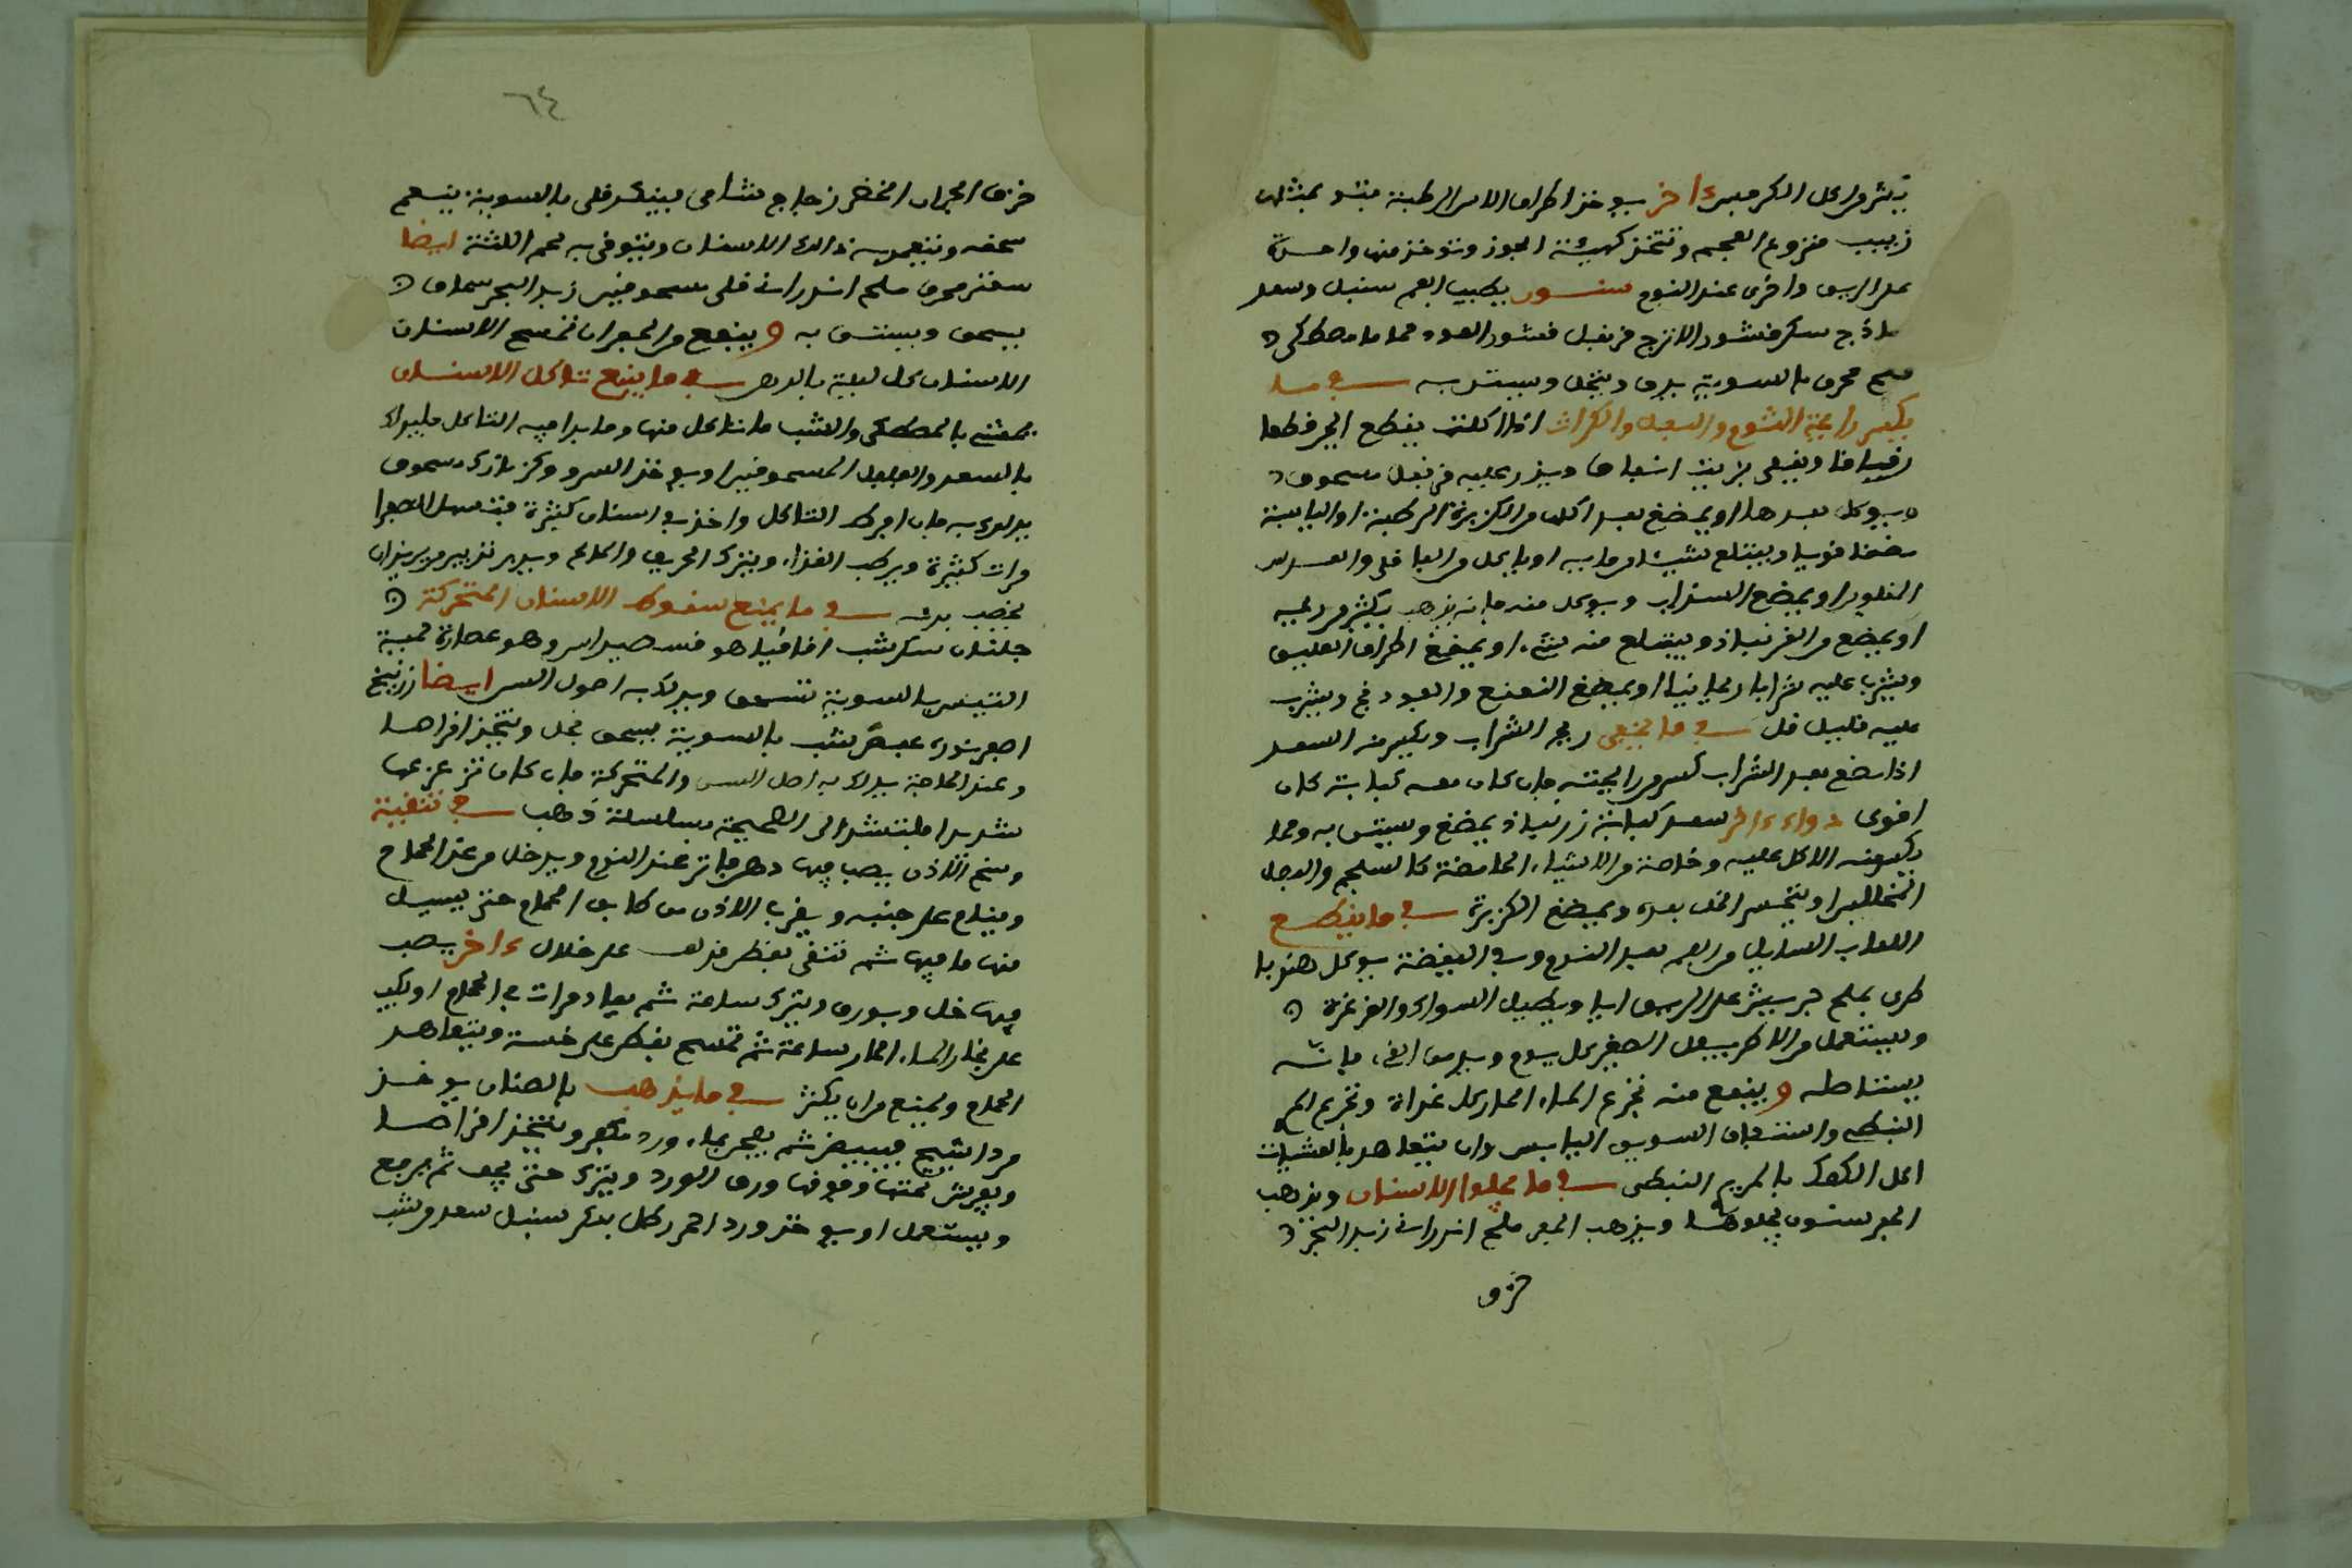 يكثر من اكل الكرفس اخر يوخذ اطراف الاس الرطبة مثله بمثله
زبيب منزوع العجم وتتخذ كهيئة الجوز وتوخذ منها واحدة
على الريق واخرى عند النوم سنون يطيب الفم سنبل وسعد
ساذج سك قشور الاترج قرنفل قشور العود فما ما مصطكى
ملح محرق بالسوية يدق وينخل ويستن به في ما
يكسر رائحة الثوم والبصل والكراث اذا اكلت يقطع الجبن قطعا
رقيقا ويغلى بزيت انفاق ويذر عليه قرنفل مسحوق
ويوكل بعدها او يمضغ بعد اكله من الكزبرة الرطبة او اليابسة
مضغا قويا ويبتلع شيئا من مايه او ياكل من الباقلى والعدس
المقلوين او يمضغ السذاب ويوكل منه فانه يذهب بكثير من ريحه
او يمضغ من الزرنباد ويبتلع منه شيء او يمضغ اطراف العليق
ويشرب عليه شرابا ريحانيا او يمضغ النعنع والفودنج ويشرب
عليه قليل خل في ما يخفي ريح الشراب ويكسر منه السعد
اذا مضغ بعد الشراب كسر من رائحته فان كان معه كبابة كان
اقوى دواء اخر سعد كبابة زرنباد يمضغ ويستن به ومما
يكسر منه الاكل عليه وخاصة من الاشياء الحامضة كالسلجم والبصل
المخللين او يتحسى الخل بعده ويمضغ الكزبرة في ما يقطع
اللعاب السايل من الفم عند النوم وفي اليقظة يوكل هندبا
طرى بملح جريش على الريق اياما ويطيل السواك والغرغرة
ويستعمل من الاطريفل الصغير كل يوم ويدمن القيء فانه
يستاصله وينفع منه تجرع الماء الحار كل غداة وتجرع المري
النبطي واستفاف السويق اليابس وان يتعاهد بالعشيات
اكل الكعك بالمري النبطي في ما يجلوا الاسنان ويذهب
الحفر سنون يجلوها ويذهب الحفر ملح اندراني زبد البحر
خزف
٦٤
خزف الجرار الخضر زجاج شامي سنبادج قلي بالسوية ينعم
سحقه وتنعم به دلك الاسنان ويتوقى به لحم اللثة ايضا
سعتر محرق ملح اندراني قلى مسحوقين زبد البحر سماق
يسحق ويستن به وينفع من الحفر ان تمسح الاسنان
الاسنان كل ليلة بالدهن في ما يمنع تاكل الاسنان
يحشى بالمصطكى والشب ما تاكل منها وما بدا فيه التاكل فليدلك
بالسعد والعفص المسحوقين او يوخذ السرو وكزمازك مسحوق
يدلك به فان افرط التاكل واخذ في اسنان كثيرة فتسهل الصفرا
مرات كثيرة ويرطب الغذاء ويترك الحريف والمالح ويدبر تدبير من يريد ان
يخصب بدنه في ما يمنع سقوط الاسنان المتحركة
جلنار سك شب اقاقيا هو فسد صيداس وهو عصارة لحية
التيس بالسوية تسحق ويدلك به اصول السن ايضا زرنيخ
اصفر نورة عفص شب بالسوية يسحق بخل ويتخذ اقراصا
وعند الحاجة يدلك به اصل السن والمتحركة فان كان تزعزعها
شديدا فلتشد الى الصحيحة بسلسلة ذهب في تنقية
وسخ الاذن يصب فيها دهن فاتر عند النوم ويدخل من غد الحمام
وينام على جنبه ويقرب الاذن من طابق الحمام حتى يسيل
منها ما فيها ثم تنقى بقطن قد لف على خلال اخر يصب
فيها خل وبورق ويترك ساعة ثم يعاد مرات في الحمام او يكب
على بخار الماء الحار ساعة ثم تمسح بقطن على خشبة ويتعاهد
الحمام ويمنع من ان يكثر في ما يذهب بالصنان يوخذ
مرداسنج فيبيض ثم يعجن بماء ورد بكافور ويتخذ اقراصا
ويفرش تحتها وفوقها ورق الورد ويترك حتى يجف ثم يرفع
ويستعمل او يوخذ ورد احمر رطل بدكر سنبل سعد مر شب